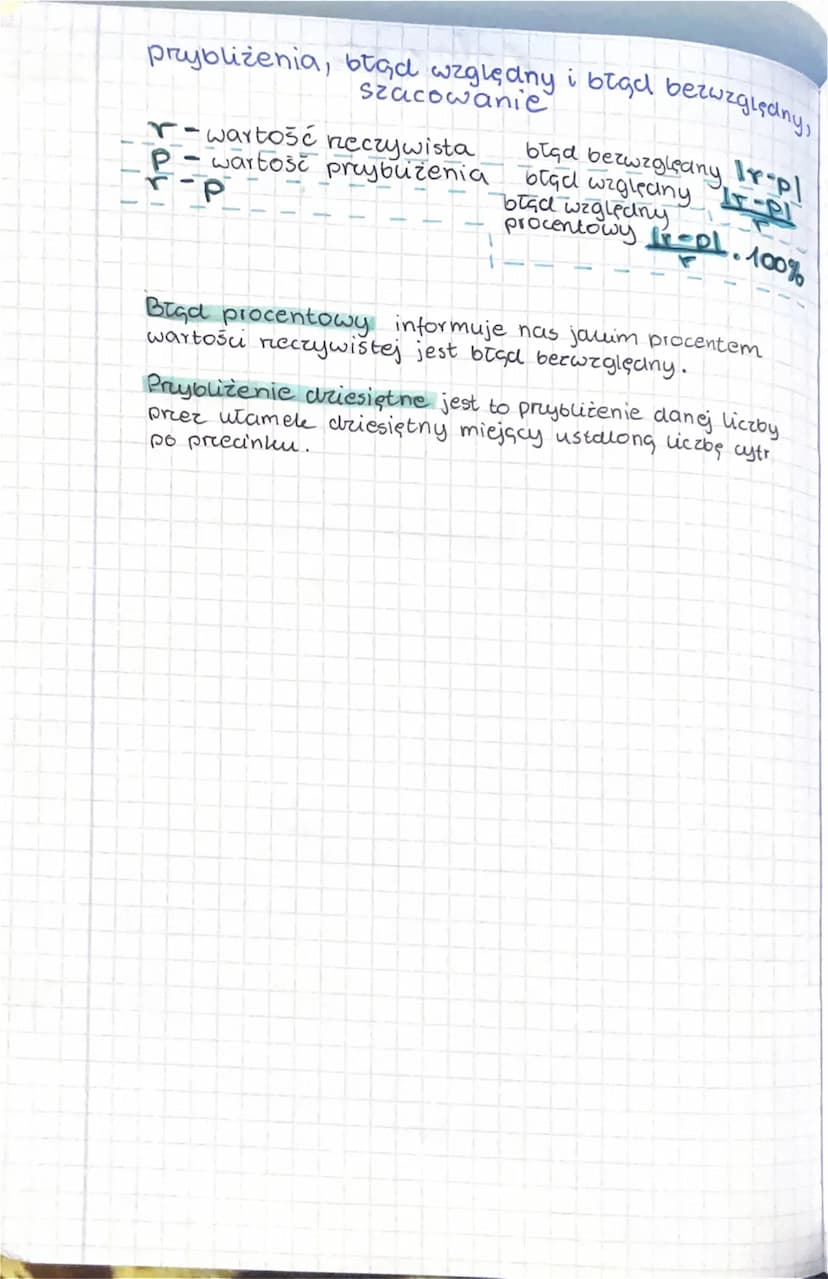 przybliżenia, błąd względny i błąd bezwzględny,
szacowanie
r - wartość rzeczywista
p - wartość przybliżenia
r - p
błąd bezwzględny |r-p|
błąd względny |r-p|
r
błąd względny
procentowy |r-p| . 100%
r
Błąd procentowy informuje nas jakim procentem
wartości rzeczywistej jest błąd bezwzględny.
Przybliżenie dziesiętne jest to przybliżenie danej liczby
przez ułamek dziesiętny miejący ustaloną liczbę cyfr
po przecinku.